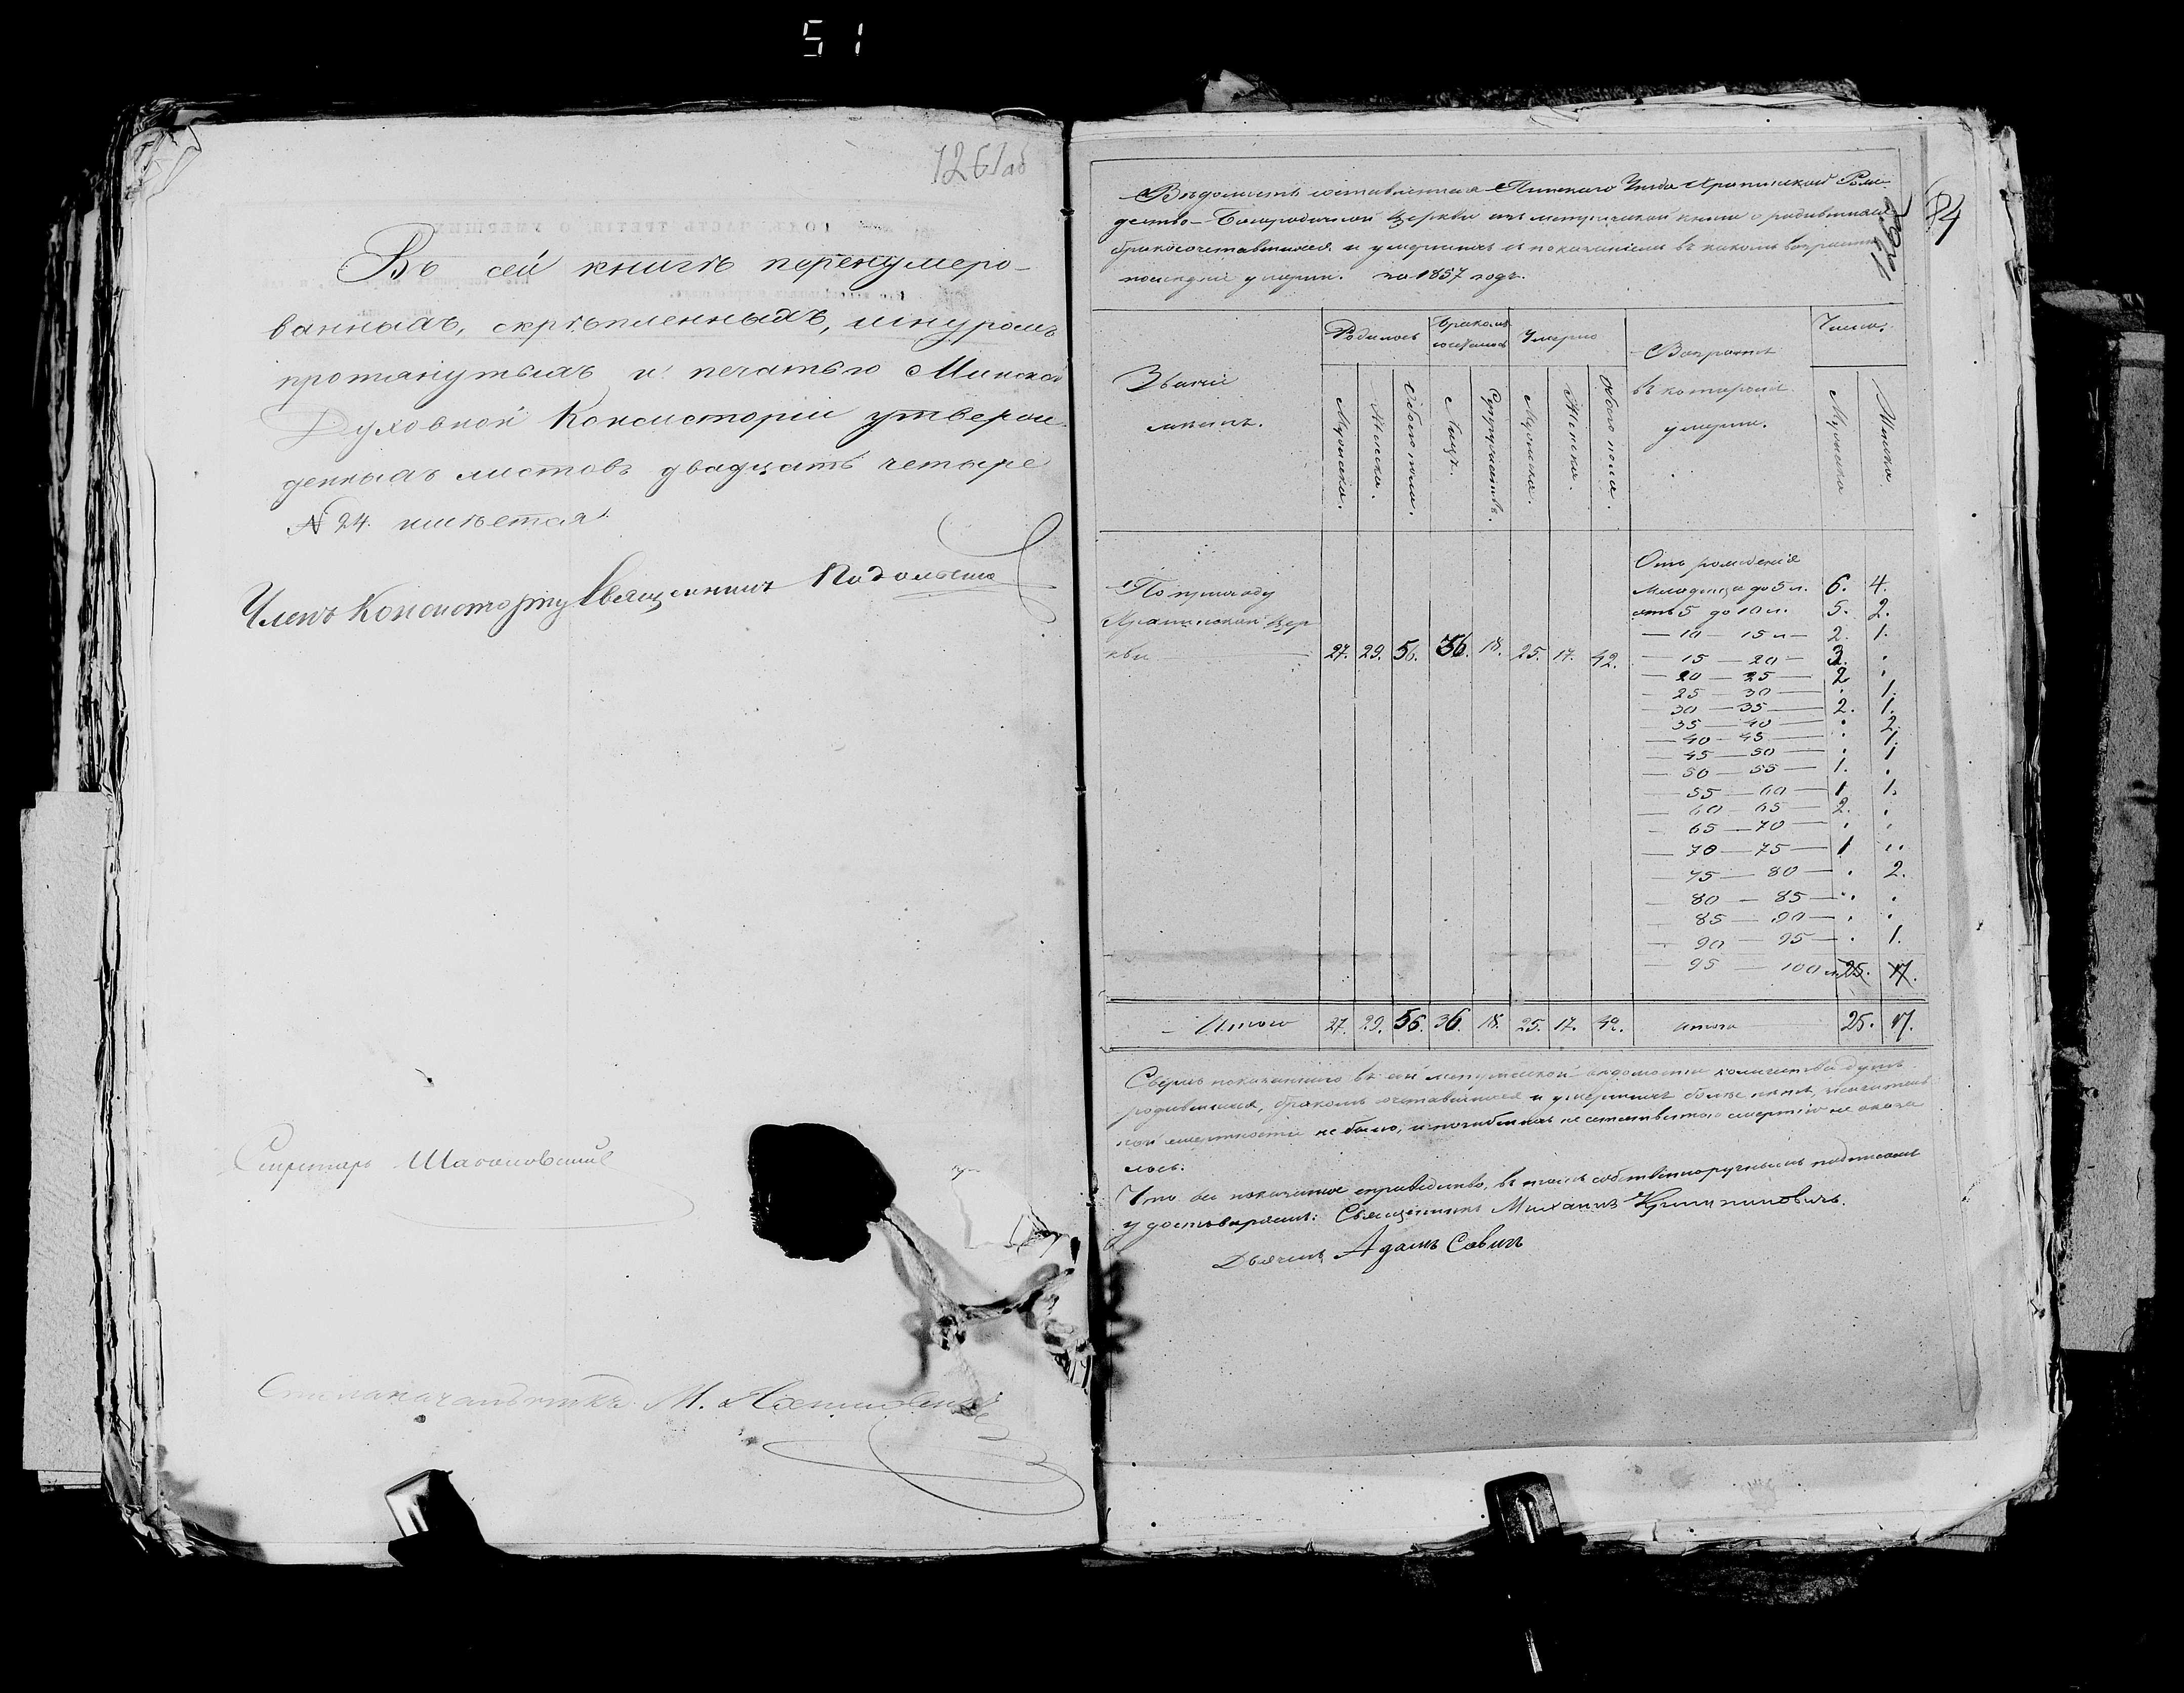 51
1261об
Въ сей книгѣ перенумеро-
ванныхъ, скрѣпленныхъ, шнуромъ
протянутыхъ и печатью Минской
Духовной Консисторіи утверж-
денныхъ листовъ двадцать четыре
№ 24. имѣется.
Членъ Консисторіи Священникъ Подольскій
Секретарь
Столоначальникъ М.
84
Вѣдомость составленная Пинскаго Уѣзда Рож-
дество-Богородичной Церкви изъ метрической книги о родившихся
бракосочетавшихся и умершихъ съ показаніемъ въ какомъ возрастѣ
послѣдніе умерли. за 1857 годъ.
Званіе
мѣстъ.
Родилось
Бракомъ
сочеталось
Умерло
Возрастъ
въ которомъ
умерли.
Число.
Мужеска.
Женска.
Обоего пола.
Лицъ.
Супружествъ.
Мужеска.
Женска.
Обоего пола.
Мужеска
Женска
По приходу
Цер
кви 27. 29. 56. 36. 18. 25. 17. 42.
Отъ рожденія
Младенца до 5 л. 6. 4.
отъ 5 до 10 л. 5. 2.
— 10 — 15 л — 2. 1.
— 15 — 20 — 3. .
— 20 — 25 — 2 .
— 25 — 30 — . 1.
— 30 — 35 — 2. 1.
— 35 — 40 — . 2.
— 40 — 45 — . 1.
— 45 — 50 — . 1
— 50 — 55 — 1. .
— 55 — 60 — 1 1.
— 60 — 65 — 2. .
— 65 — 70 — . .
— 70 — 75 — 1 ..
— 75 — 80 — . 2.
— 80 — 85 — . .
— 85 — 90 — . .
— 90 — 95 — . 1.
— 95 — 100 л. 25. 17.
Итого 27. 29. 56. 36. 18. 25. 17. 42. итого 25. 17.
Сверхъ показаннаго въ сей метрической вѣдомости количества душъ
родившихся, бракомъ сочетавшихся и умершихъ болѣе нѣтъ, значитель
ной смертности не было, и погибшихъ неестественною смертію не оказа
лось.
Что все показанное справедливо, въ томъ собственноручнымъ подписомъ
удостовѣряемъ: Священникъ Михаилъ
Дьячекъ Адамъ Савичъ